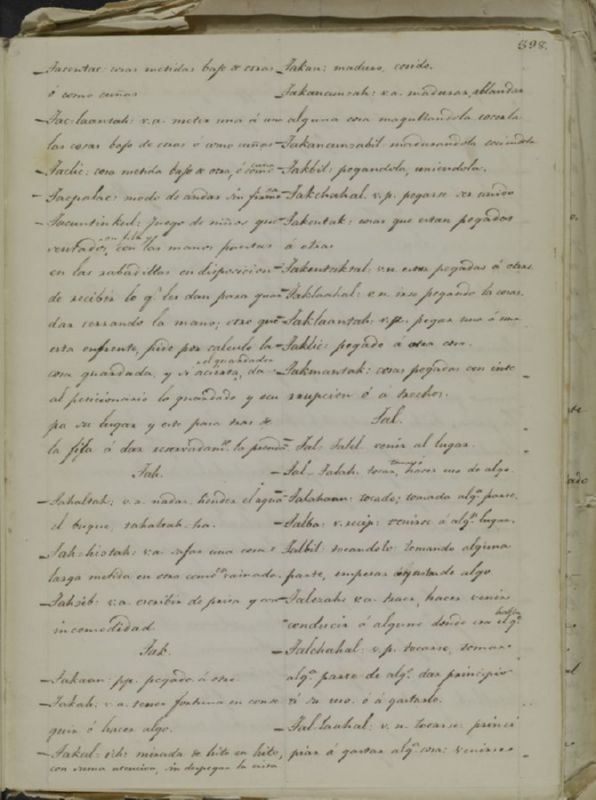 398.
Tacantac: cosas metidas bajo de otras
ó como cuñas
Tac-laantah: v.a. meter una á una
las cosas bajo de otras ó como cuñas
Taclic: cosa metida bajo de otra, ó como cuña
Tacpalac: modo de andar sin firmeza
Tacuntinkul: Juego de niños que
sentados, en fila y con las manos puestas
en las rabadillas en disposicion
de recibir lo q.e les dan para guar
dar cerrando la mano; otro que
esta enfrente, pide por calculo la
cosa guardada, y si acierta, el guardador da
al peticionario lo guardado y ocu
pa su lugar y este pasa tras de
la fila á dar reservadam.te la prenda
Tah.
Tahaltah: v.a. nadar, hender el agua
el buque, tahaltah-ha.
Tah-hiotah: v.a. safar una cosa
larga metida en otra como vainada.
Tahtib: v.a. escribir de prisa y con
incomodidad
Tak.
Takaan: pp. pegado á otro
Takah: v.a. tener fortuna en conse
guir ó hacer algo.
Takul-ich: mirada de hito en hito,
con suma atencion, sin despegar la vista
Takan: maduro, cocido.
Takancunsah: v.a. madurar, ablandar
alguna cosa magullandola, cocerla
Takancunsabil: madurandola cociendola
Takbil: pegandola, uniendola.
Takchahal: v.p. pegarse ser unido
Takentak: cosas que estan pegadas
á otras
Takentaktal: v.n. estar pegadas á otras
Taklaahal: v.n. irse pegando las cosas.
Taklaantah: v.a. pegar una á una
Taklic: pegado á otra cosa.
Takmantak: cosas pegadas con inte
rrupcion ó á trechos.
Tal.
Tal-talel: venir al lugar.
Tal-Talah: tocar, tomar, hacer uso de algo.
Talahaan: tocado; tomada alg.a parte.
Talba: v. recip: venirse á alg.n lugar.
Talbil: tocandolo: tomando alguna
parte, empezar á gastar de algo
Talezah: v.a. traer, hacer venir
conducir á alguno donde esta el q.e habla
Talchahal: v.p. tocarse, tomarse
alg.a parte de alg.o dar principio
á su uso. ó á gastarlo.
Tal-laahal: v.n. tocarse: princi
piar á gastar alg.a cosa: venirse